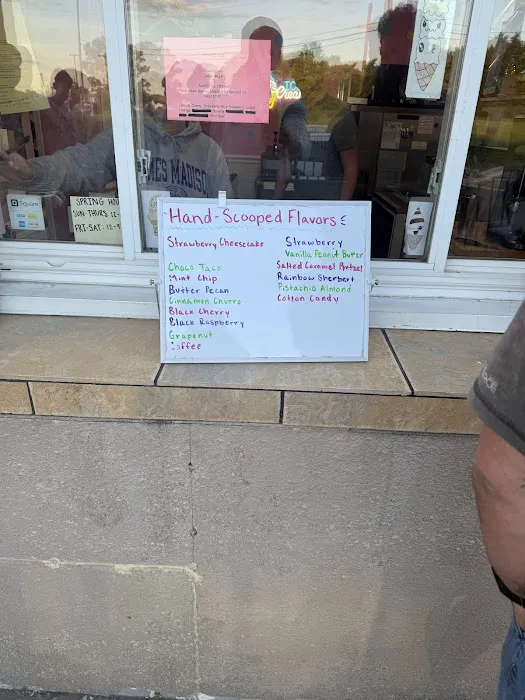 Hand-Scooped Flavors
Strawberry Cheesecake
Choco Taco
Mint Chip
Butter Pecan
Cinnamon Churro
Black Cherry
Black Raspberry
Grapenut
Coffee
Strawberry
Vanilla Peanut Butter
Salted Caramel Pretzel
Rainbow Sherbert
Pistachio Almond
Cotton Candy
SPRING
SUN-THURS: 12-
FRI-SAT: 12-
Square
VISA
MADISON